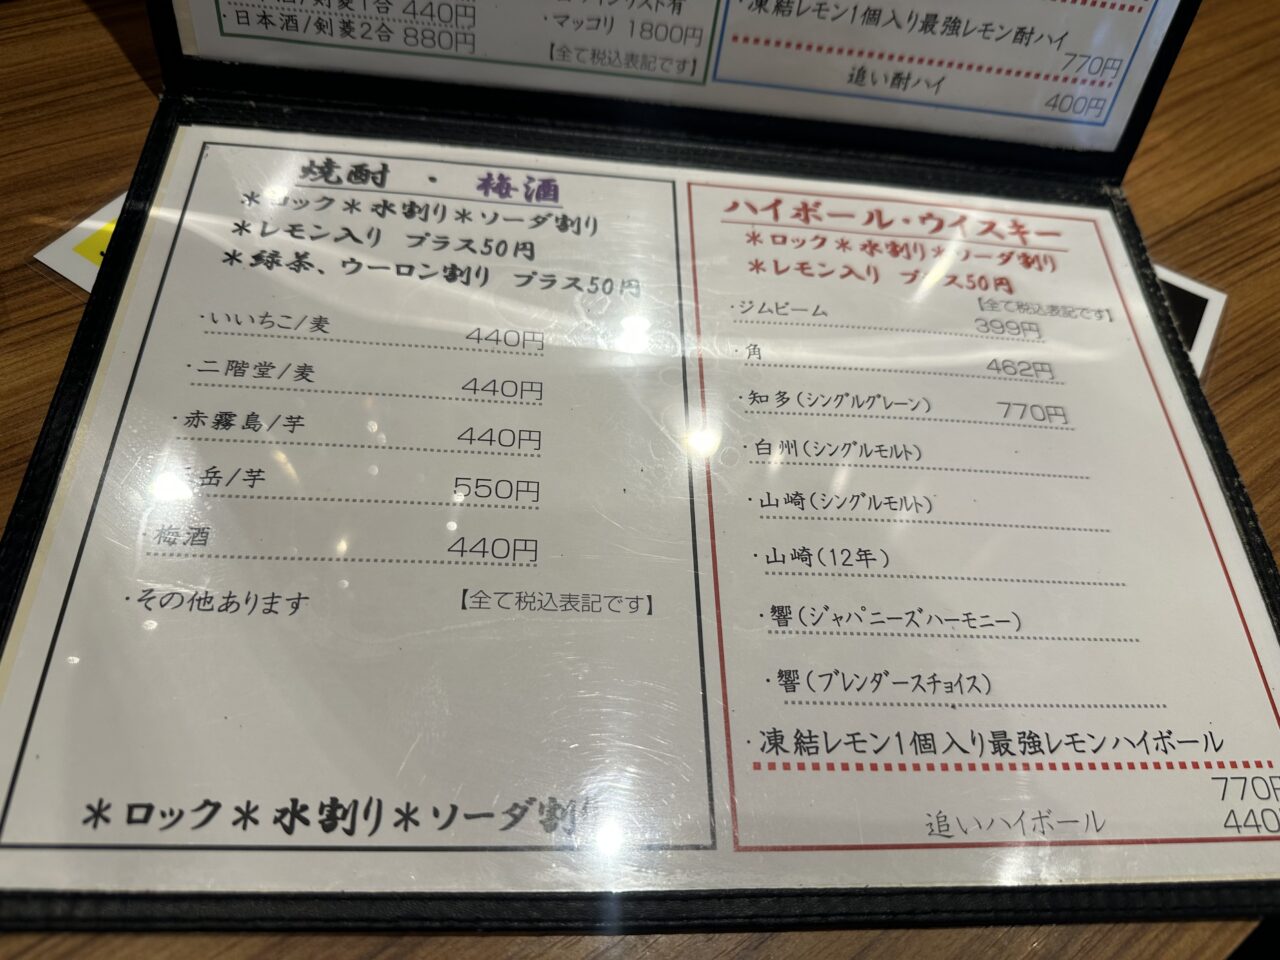 合 440円
・日本酒/剣菱2合 880円
・マッコリ 1800円
【全て税込表記です】
・凍結レモン1個入り最強レモン酎ハイ
770円
追い酎ハイ
400円
焼酎・梅酒
＊ロック＊水割り＊ソーダ割り
＊レモン入り プラス50円
＊緑茶、ウーロン割り プラス50円
・いいちこ/麦 440円
・二階堂/麦 440円
・赤霧島/芋 440円
岳/芋 550円
・梅酒 440円
・その他あります 【全て税込表記です】
＊ロック＊水割り＊ソーダ割
ハイボール・ウイスキー
＊ロック＊水割り＊ソーダ割り
＊レモン入り プラス50円
【全て税込表記です】
・ジムビーム 399円
・角 462円
・知多(シングルグレーン) 770円
・白州(シングルモルト)
・山崎(シングルモルト)
・山崎(12年)
・響(ジャパニーズハーモニー)
・響(ブレンダースチョイス)
・凍結レモン1個入り最強レモンハイボール
770円
追いハイボール 440